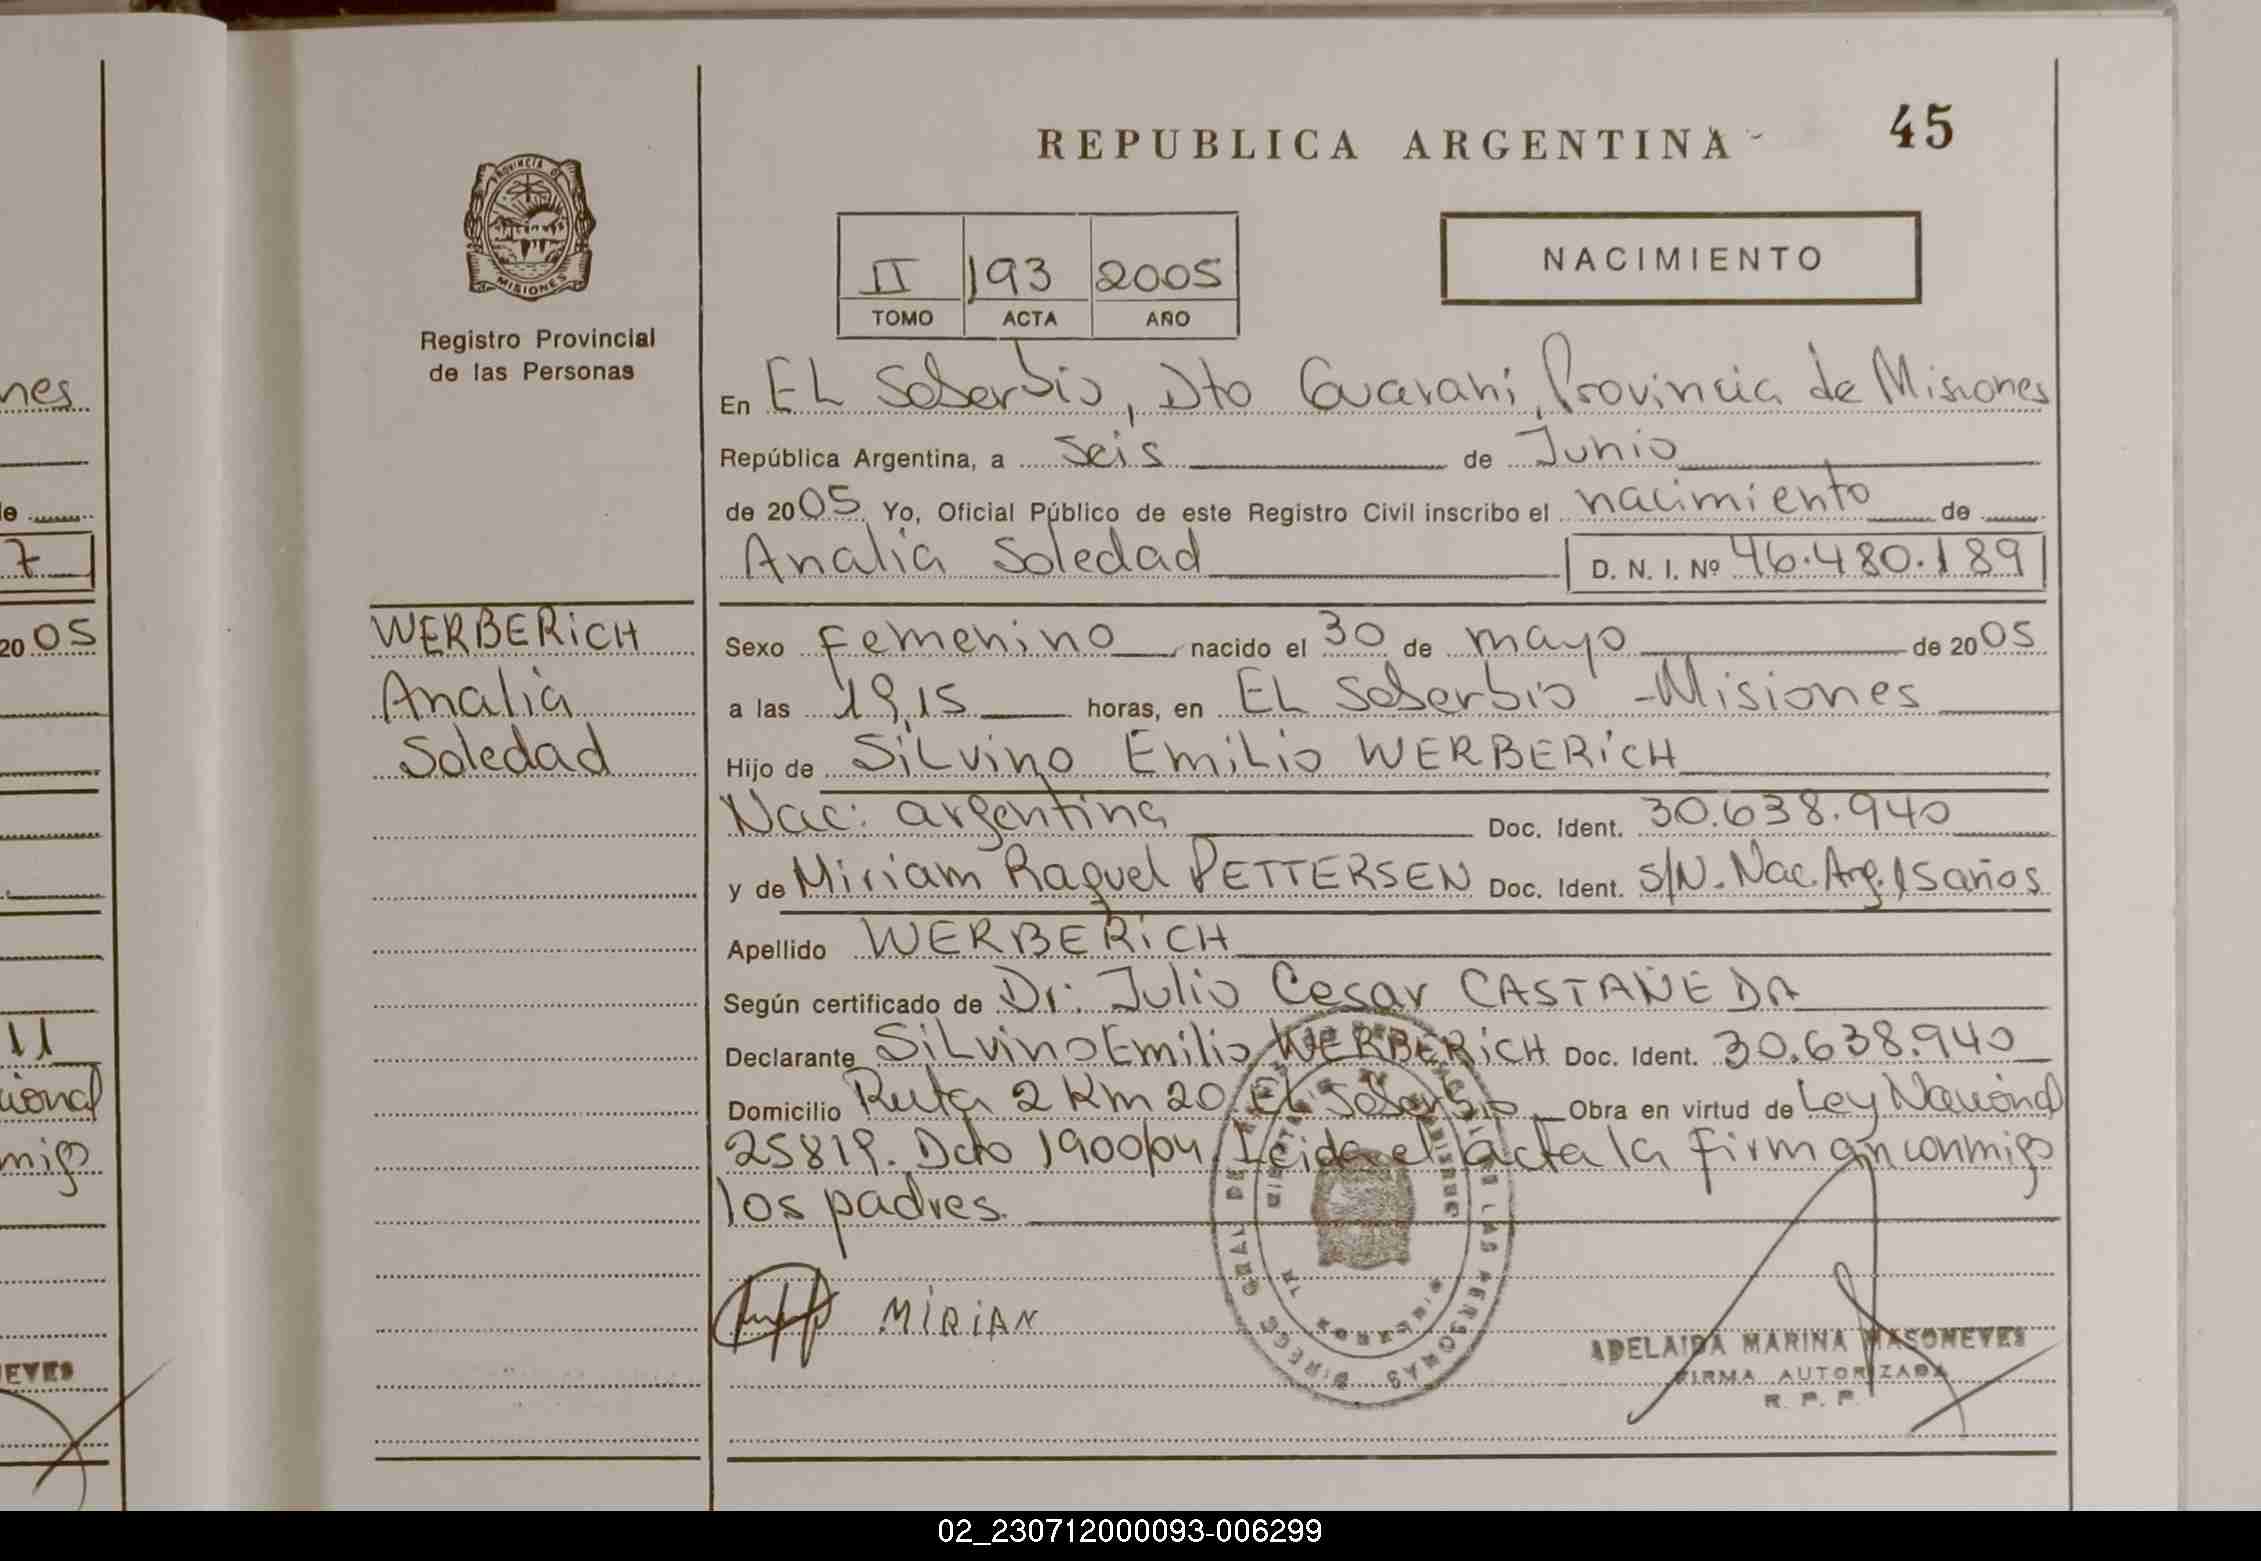 REPUBLICA ARGENTINA
45
PROVINCIA DE
MISIONES
Registro Provincial
de las Personas
II 193 2005
TOMO ACTA AÑO
NACIMIENTO
En EL Soberbio, Dto Guarani, Provincia de Misiones
República Argentina, a seis de Junio
de 2005 Yo, Oficial Público de este Registro Civil inscribo el nacimiento de
Analia Soledad D. N. I. Nº 46.480.189
WERBERiCH
Analia
Soledad
Sexo Femenino nacido el 30 de mayo de 2005
a las 19,15 horas, en EL Soberbio - Misiones
Hijo de SiLvino EmiLio WERBERiCH
Nac: argentina Doc. Ident. 30.638.940
y de Miriam Raquel PETTERSEN Doc. Ident. S/N. Nac. Arg. 15 años
Apellido WERBERiCH
Según certificado de Dr: Julio Cesar CASTAÑEDA
Declarante SiLvino Emilio WERBERiCH Doc. Ident. 30.638.940
Domicilio Ruta 2 Km 20 EL Soberbio Obra en virtud de Ley Nacional
25819. Dcto 1900/04 Leida el acta la firman conmigo
los padres.
MiRiAN
ADELAIDA MARINA MASONEVES
FIRMA AUTORIZADA
R. P. P.
nes
de
7
2005
11
cional
migo
EVES
02_230712000093-006299